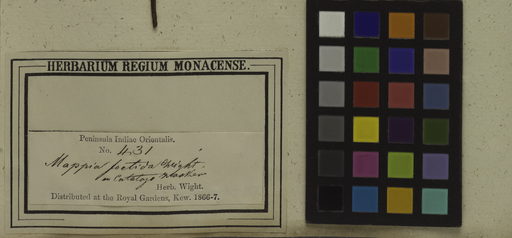 HERBARIUM REGIUM MONACENSE.
Peninsula Indiae Orientalis.
No. 431
Mappia foetida Wight.
in Catalogo
Herb. Wight.
Distributed at the Royal Gardens, Kew. 1866-7.